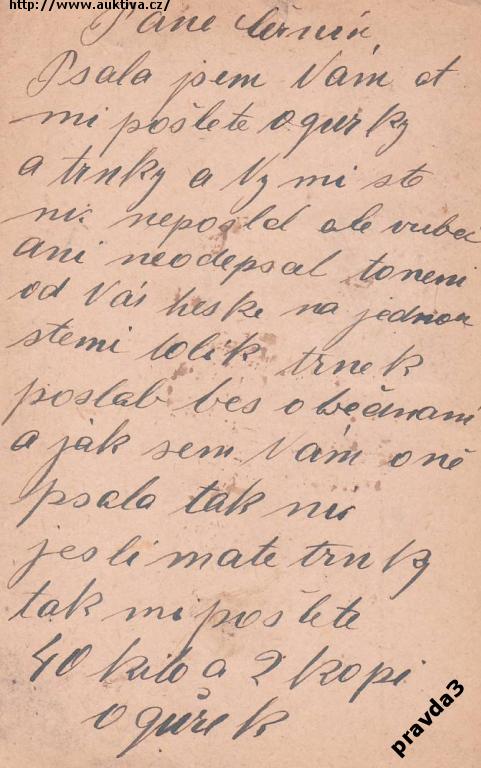 http://www.auktiva.cz/
Pane Černín
Psala jsem Vám at
mi pošlete ogurky
a trnky a Vy mi ste
nic neposlal ale vubec
ani neodepsal to neni
od Vás heske na jednou
stemi tolik trnek
poslab bes obědnani
a jak sem Vám oně
psala tak nic
jesli mate trnky
tak mi pošlete
40 kilo a 2 kopi
ogurek
pravda3